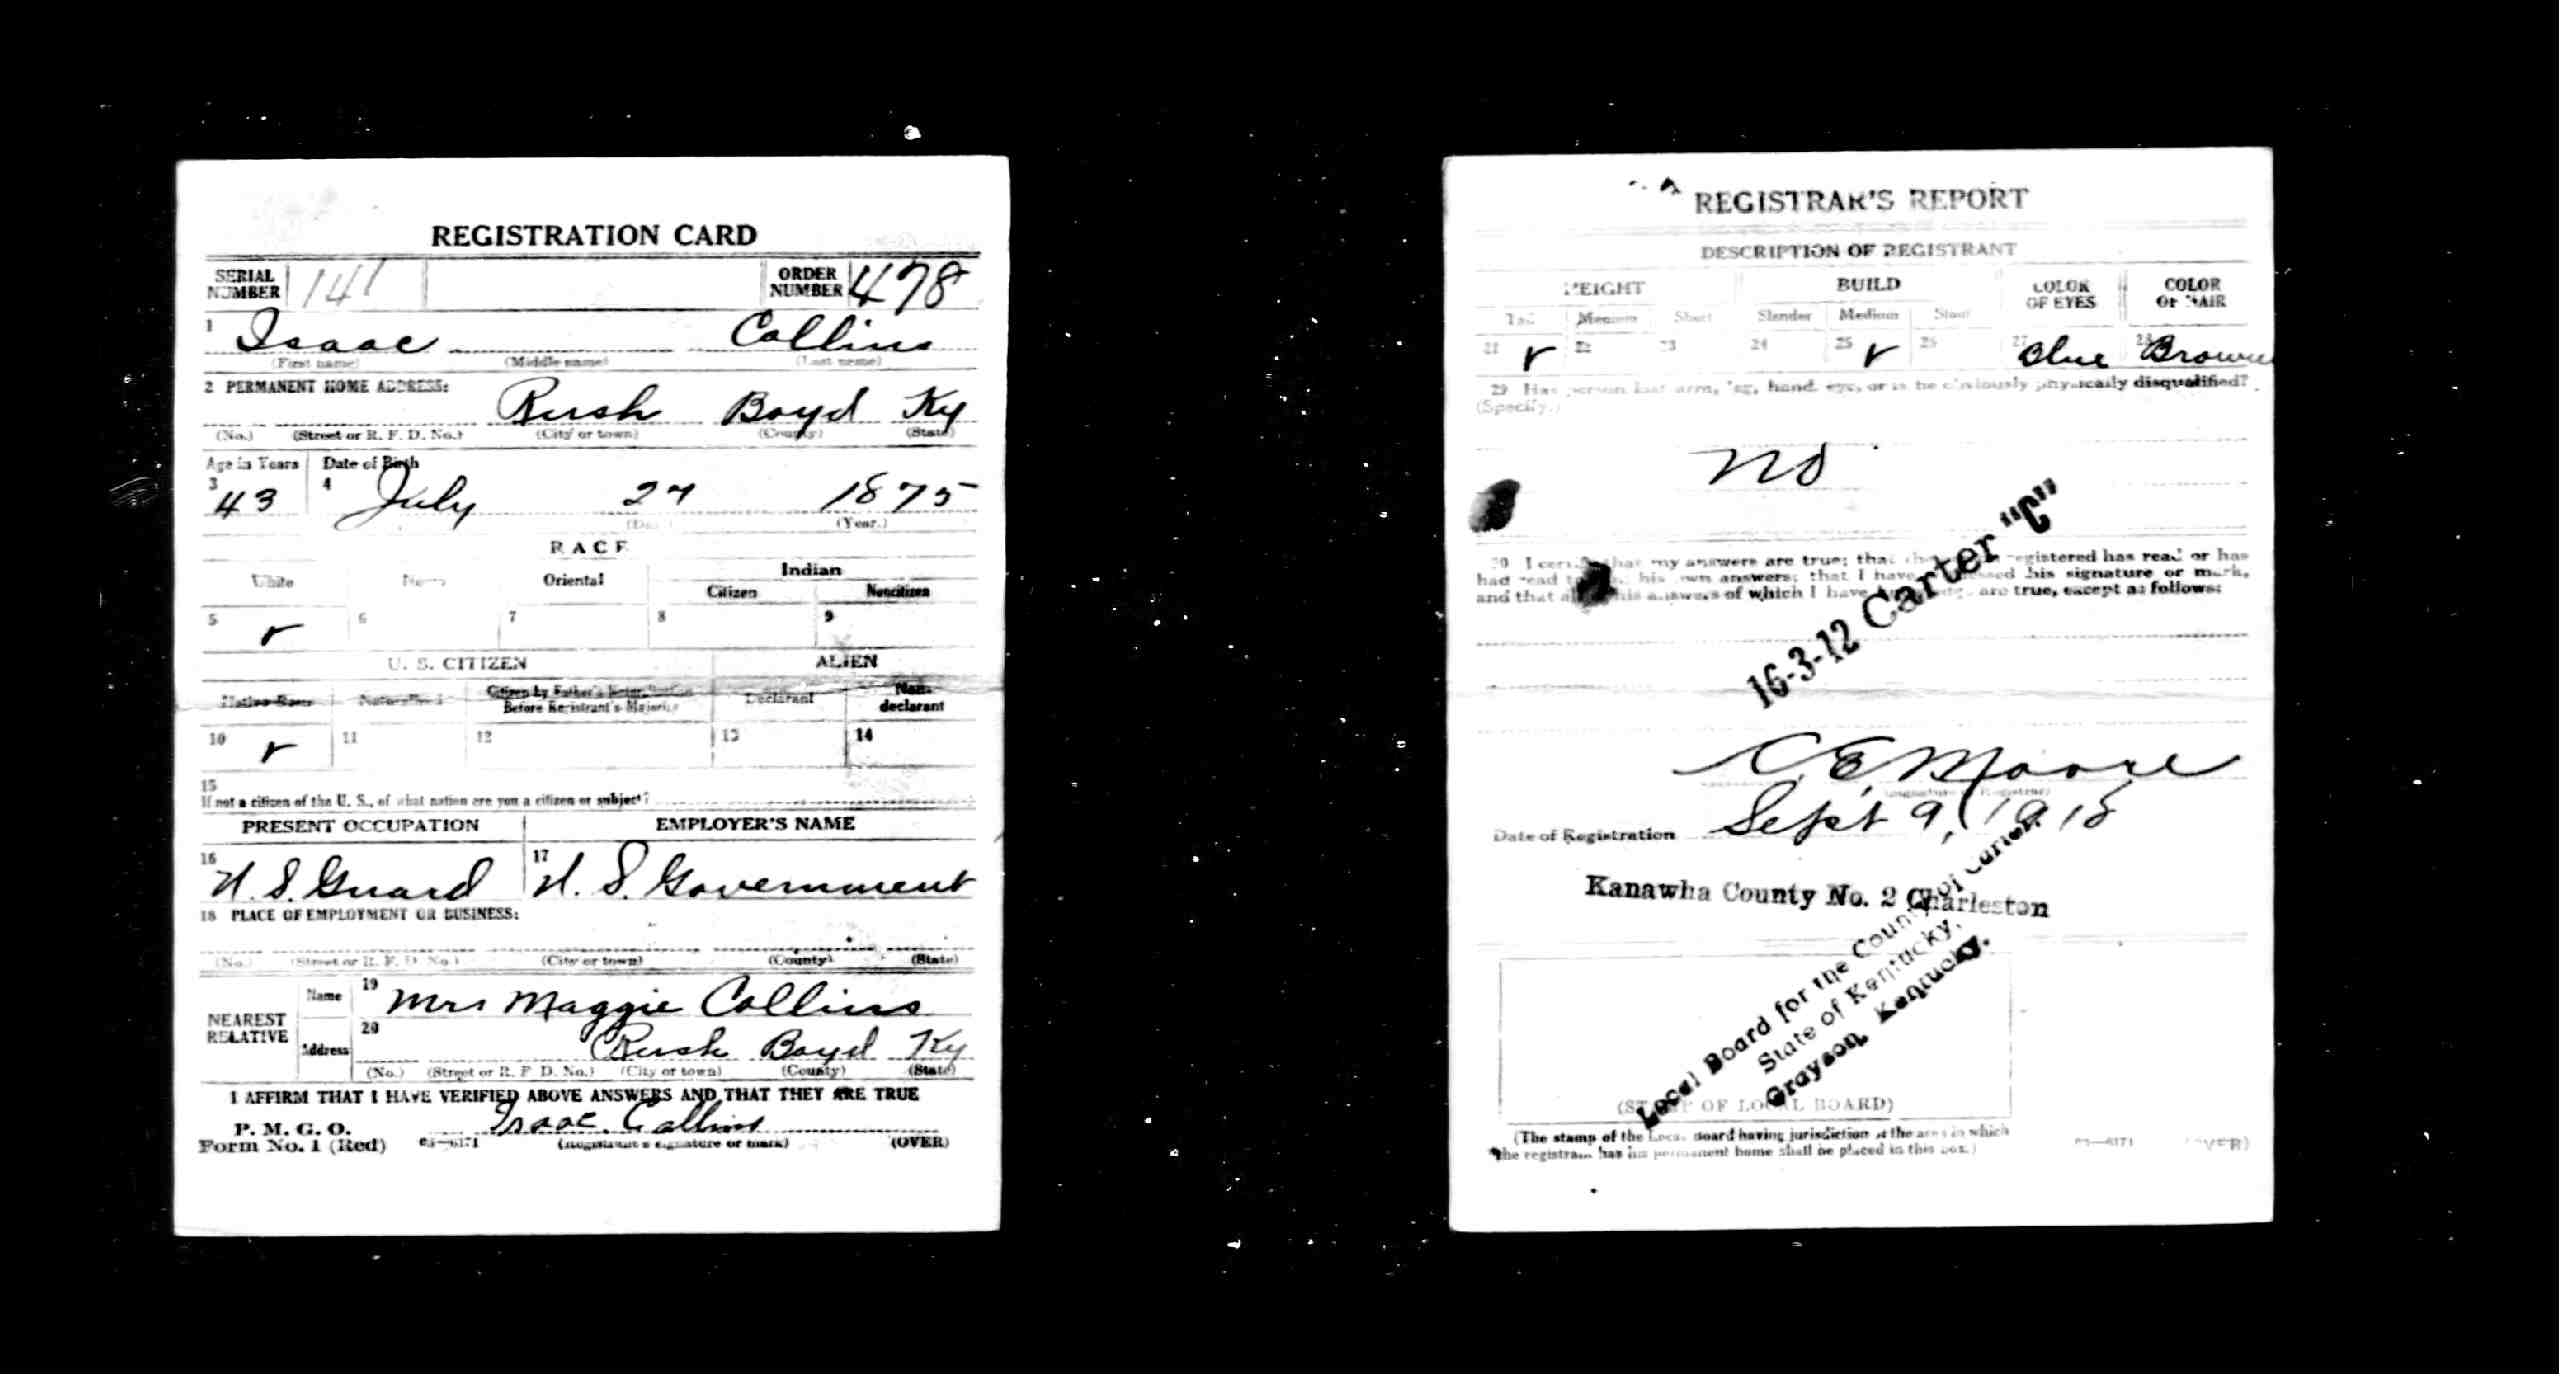 REGISTRATION CARD
SERIAL NUMBER 141 ORDER NUMBER 478
1 Isaac Collins
(First name) (Middle name) (Last name)
2 PERMANENT HOME ADDRESS:
Rush Boyd Ky
(No.) (Street or R. F. D. No.) (City or town) (County) (State)
Age in Years Date of Birth
3 43 4 July 27 1875
(Day.) (Year.)
RACE
White Negro Oriental Indian
Citizen Noncitizen
5 ✓ 6 7 8 9
U. S. CITIZEN ALIEN
Native Born Naturalized Citizen by Father's Naturalization Before Registrant's Majority Declarant Non-declarant
10 ✓ 11 12 13 14
15
If not a citizen of the U. S., of what nation are you a citizen or subject?
PRESENT OCCUPATION EMPLOYER'S NAME
16 U. S. Guard 17 U. S. Government
18 PLACE OF EMPLOYMENT OR BUSINESS:
(No.) (Street or R. F. D. No.) (City or town) (County) (State)
NEAREST RELATIVE
Name 19 Mrs Maggie Collins
Address 20 Rush Boyd Ky
(No.) (Street or R. F. D. No.) (City or town) (County) (State)
I AFFIRM THAT I HAVE VERIFIED ABOVE ANSWERS AND THAT THEY ARE TRUE
P. M. G. O.
Form No. 1 (Red) 03—6171 Isaac Collins (OVER)
(Registrant's signature or mark)
REGISTRAR'S REPORT
DESCRIPTION OF REGISTRANT
HEIGHT BUILD COLOR OF EYES COLOR OF HAIR
Tall Medium Short Slender Medium Stout
21 ✓ 22 23 24 25 ✓ 26 27 Blue 28 Brown
29 Has person lost arm, leg, hand, eye, or is he obviously physically disqualified?
(Specify.)
No
30 I certify that my answers are true; that the person registered has read or has
had read to him his own answers; that I have witnessed his signature or mark,
and that all of his answers of which I have knowledge are true, except as follows:
16-3-12 Carter "C"
C E Moore
(Signature of Registrar)
Date of Registration Sept 9, 1918
Kanawha County No. 2 Charleston
Local Board for the County of Carter.
State of Kentucky,
Grayson, Kentucky.
(STAMP OF LOCAL BOARD)
(The stamp of the Local Board having jurisdiction of the area in which
the registrant has his permanent home shall be placed in this box.)
03—6171 (OVER)